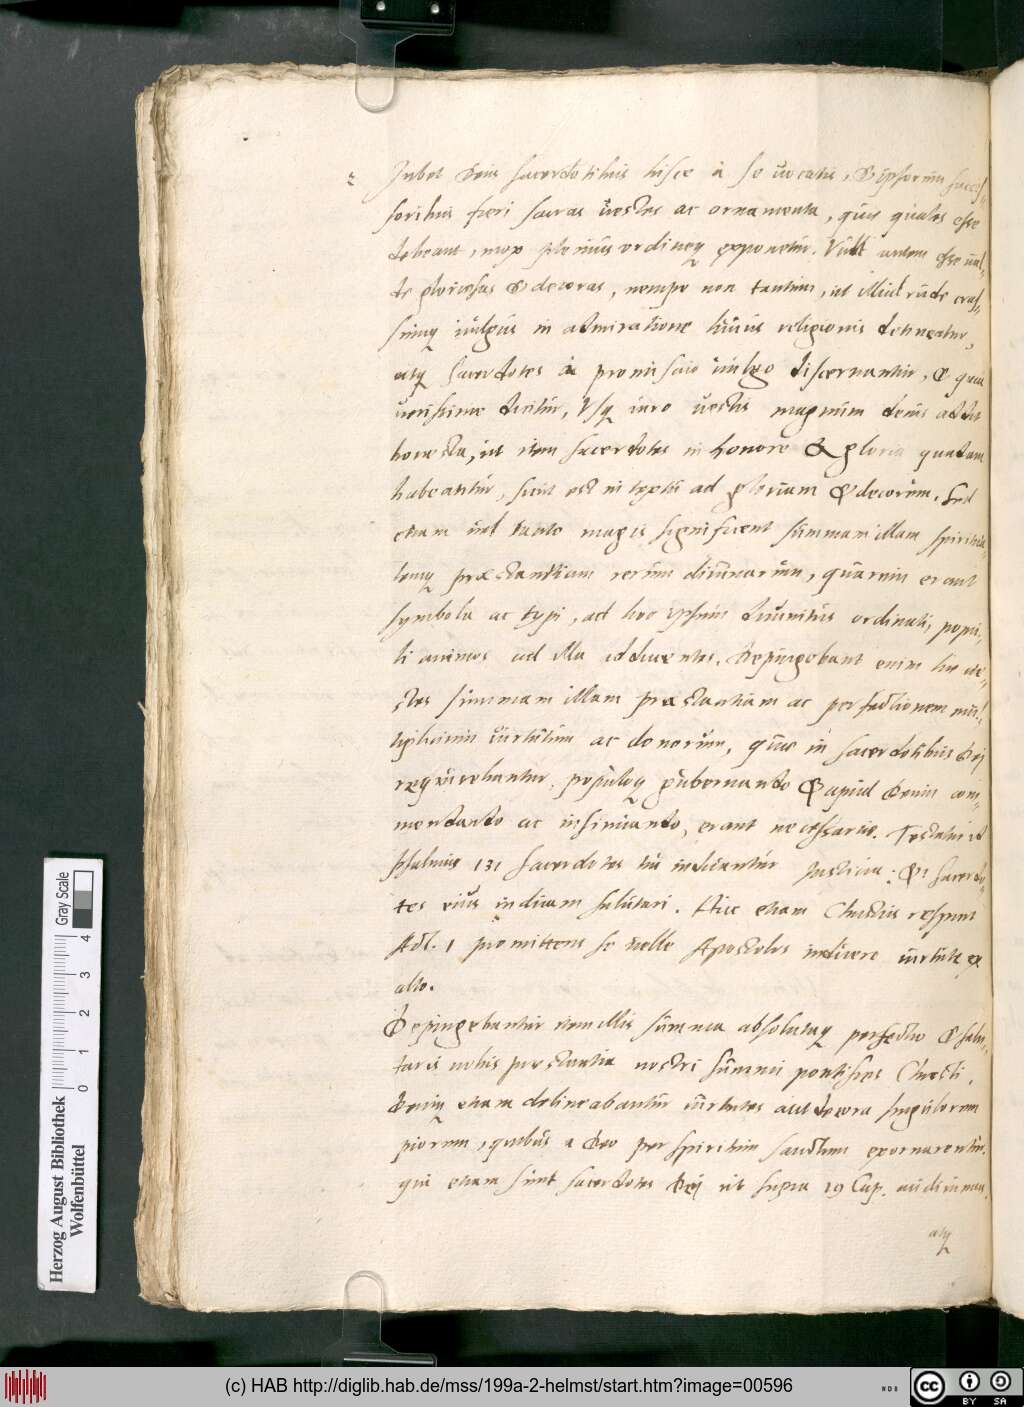 2 Iubet Deus sacerdotibus hisce à se vocatis, & ipsorum succes-
soribus fieri sacras vestes ac ornamenta, quae quales esse
debeant, mox plenius ordineq exponetur. Vult autem esse val-
de gloriosas & decoras, nempe non tantum, ut illud rude cras-
sumq vulgus in admiratione huius religionis detineatur,
atq sacerdotes à promiscuo vulgo discernantur, & quia
verissime dicitur, Usq vero vestis magnum decus addit
honesta, ut item sacerdotes in honore & gloria quadam
habeantur, sicut est in textu ad gloriam & decorem. Sed
etiam vel tanto magis significent summam illam spiritua-
lemq præstantiam rerum divinarum, quarum erant
symbola ac typi, ad hoc ipsum divinitus ordinati, popu-
li animos ad illa adducentes. Depingebant enim hae ve-
stes summam illam præstantiam ac perfectionem mul-
tiplicium virtutum ac donorum, quae in sacerdotibus Dei
requirebantur, populoq gubernando & apud Deum com-
mendando ac insinuando, erant necessariae. Testatur id
Psalmus 131 Sacerdotes tui induantur Iusticia: Et sacerdo-
tes eius induam salutari. Huc etiam Christus respexit
Act. 1 promittens se velle Apostolos induere virtute ex
alto.
Depingebantur item illis summa absolutaq perfectio & salu-
taris nobis præstantia nostri summi pontificis Christi,
Denuq etiam delineabantur virtutes aut decora singulorum
piorum, quibus a Deo per spiritum sanctum exornarentur.
qui etiam sunt sacerdotes Dei ut supra 19 Cap. audivimus,
atq
(c) HAB http://diglib.hab.de/mss/199a-2-helmst/start.htm?image=00596
Herzog August Bibliothek
Wolfenbüttel
0 1 2 3 4
Gray Scale
NDB
cc BY SA